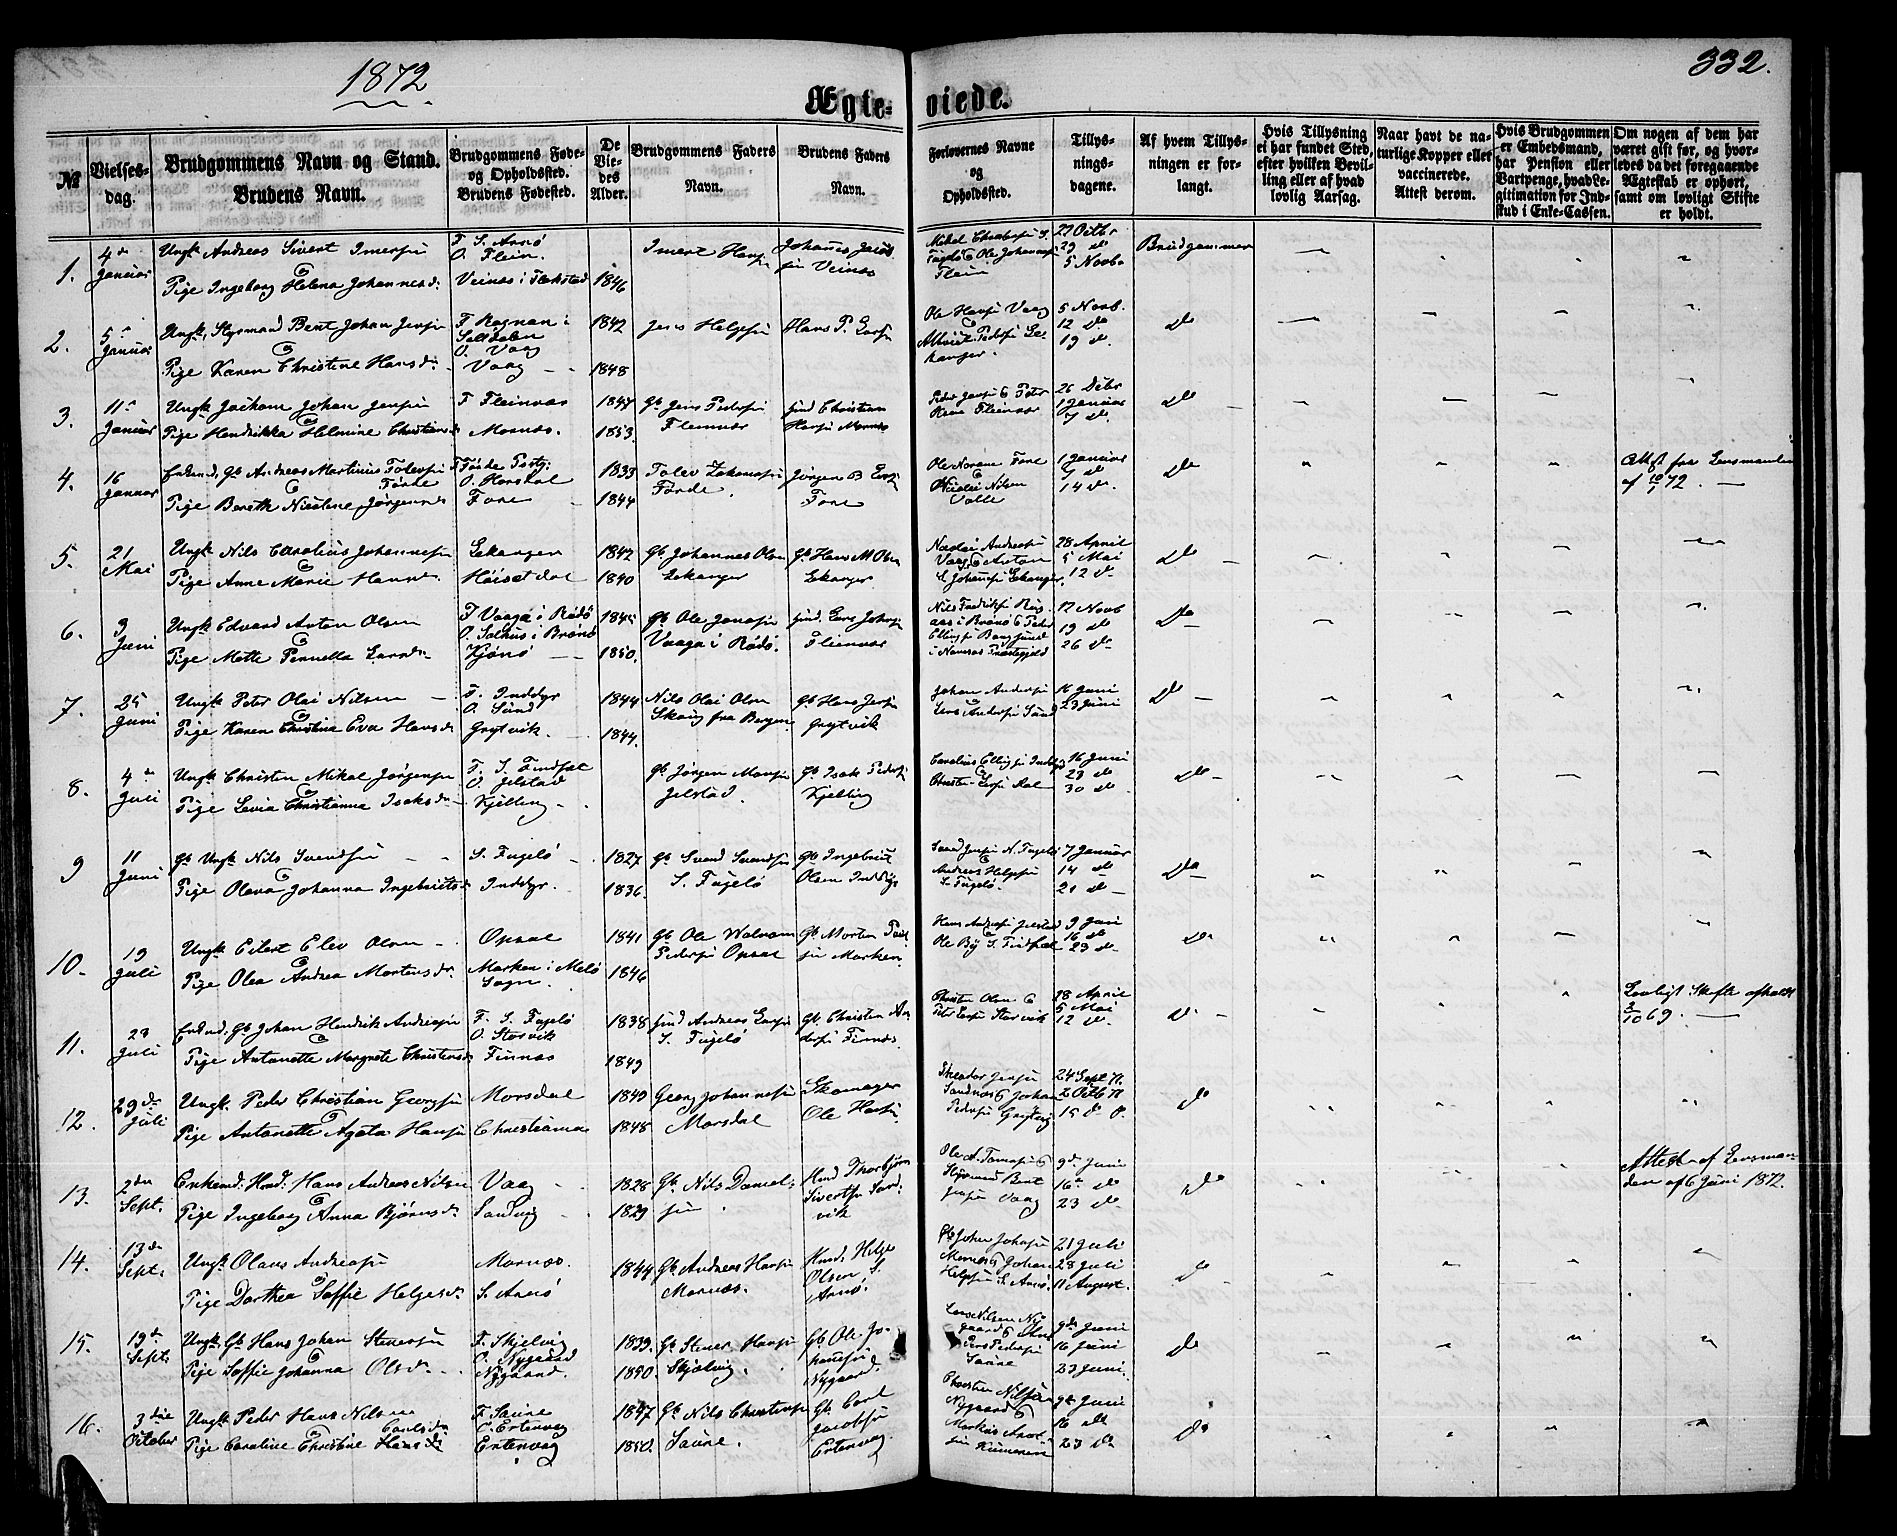 1872
332.
Ægteviede.
№
Vielsesdag.
Brudgommens Navn og Stand.
Brudens Navn.
Brudgommens Føde-
og Opholdssted.
Brudens Fødested.
De
Vie-
des
Alder.
Brudgommens Faders
Navn.
Brudens Faders
Navn.
Forlovernes Navne
og
Opholdssted.
Tillys-
nings-
dagene.
Af hvem Tillys-
ningen er for-
langt.
Hvis Tillysning
ei har fundet Sted,
efter hvilken Bevil-
ling eller af hvad
lovlig Aarsag.
Naar havt de na-
turlige Kopper eller
vaccinerede.
Attest derom.
Hvis Brudgommen
er Embedsmand,
har Pension eller
Vartpenge, hvad Le-
gitimation for Ind-
skud i Enke-Cassen.
Om nogen af dem har
været gift før, og hvor-
ledes da det foregaaende
Ægteskab er ophørt,
samt om lovligt Skifte
er holdt.
1. 4de Januar
Ungk. Andreas Sivert Imersen
Pige Ingeborg Helena Johannesd.
F. S. Arnø
O. Flein.
Veinæs i Flakstad 1846
Imert Hans
Johannes
Veinæs
Ole Johannes
Flein
22 Octbr
29 do
5 Novb.
Brudgommen
2. 5 Januar
Ungk. Bent Johan Jensen
Pige Karen Christine Hansd.
F. Rognan i
Saltdalen
O. Vaag
Vaag
1842
1848
Jens Helgesen
Hans P.
Ole Hansen Vaag
5 Novb.
12 do
19 do
do
3. 11 Januar
Ungk. Jochom Johan Jensen
Pige Hendrikka Helmine Christians
F. Fleinvær
Mornæs.
1847
1853.
Gb. Jens Pedersen
Fleinvær
Ind. Christian
Hansen Mornæs
Peder Jensen & Peter
Fleinvær
26 Debr
1 Januar
7 do
do
4. 16 Januar
Enkemd. Gb. Andreas Martinus Tolevsen
Førde
Pige Bereth Nicoline Jørgensd.
O. Horsdal
Fore
1833
1844
Tolev Zakariasen
Førde.
Jørgen B
Fore
Ole Fore
Nilsen
Valle
1 Januar
7 do
14 do.
do
Attest fra Lensmanden
af 10/1 72.
5. 21 Mai
Ungk. Nils Carolius Johannesen
Pige Anne Marie Hansd.
Lekanger
Høisetdal
1842
1840
Gb. Johannes Olsen
Lekanger
Gb. Hans M. Olsen
Lekanger
Nicolai Andreasen
Vaag & Anton
Lekanger.
28 April
5 Mai
12 do
do
6. 9 Juni
Ungk. Edvard Anton Olsen
Pige Mette Pernella Larsd.
F. Vaaga i Rødø
O. Salhus i Brønø
Kjønø
1845
1850.
Gb. Ole Jonasen
Vaaga i Rødø.
Ind. Lars Johns
Fleinvær
Nils Fredriksen
i Brønø & Peder
i Namsos Præstegjeld
12 Novb
19 do
26 do
do
7. 25 Juni
Ungk. Peter Olai Nilsen
Pige Karen Christina Eva Hansd.
F. Inddyr
O. Sund
Grytvik.
1844
1844.
Nils Olai Olsen
Skaug fra Bergen
Gb. Hans Jensen
Grytvik
Johan Andersen
Lars Andersen Sund
16 Juni
23 Juni
do
8. 4de Juli
Ungk. Christen Mikal Jørgensen
Pige Levia Christianna Isaksd.
F. S. Findsæt
O. Jelstad
Kjelling
Gb. Jørgen Monsen
Jelstad.
Gb. Isak Pedersen
Kjelling
Carolius Ellingsen Inddyr
16 Juni
23 do
30 do
do
9 11 Juni
Gb. Ungk. Nils Svendsen
Pige Olava Johanna Ingebrigts
S. Fugelø
Inddyr.
1827
1836.
Gb. Svend Svendsen
S. Fugelø
Gb. Ingebrigt
Olsen Inddyr
N. Fugelø
Andreas Helgesen
S. Fugelø.
7 Januar
14 do
21 do
do
10. 19 Juli
Ungk. Eilert Elev Olsen
Pige Olea Andrea Mortensdr.
Opsal
Marken i Melø
Sogn.
1841
1846
Gb. Ole
Pedersen Opsal
Gb. Morten
Marken.
Hans Andreas Jelstad
Ole By S. Findsæt
9 Juni
16 do
23 do
do
11. 23 Juli
Enkmd. Gb. Johan Hendrik Andreasen
Pige Antonette Margrete Christensd.
F. S. Fugelø
O. Storvik
Finnæs
1838
1849
Ind. Andreas
S. Fugelø
Gb. Christen An-
dersen Finnæs
Christen Olsen &
Storvik
28 April
5 Mai
12 do
do
Lovligt Skifte afholdt
2/10 69.
12. 29de Juli
Ungk. Peder Christian Georgsen
Pige Antonette Agata Hansen
Morsdal
Christiania
1849
1848
Georg Johannesen
Morsdal
Skomager
Ole Hansen
Theodor Jensen
Sandnæs & Johan
Pedersen Grytvig
24 Sept 71.
2 Octb 71
15 do
do
13. 2den Sept.
Enkemd. Hans Andreas Nilsen
Pige Ingeborg Anna Bjørnsd.
Vaag
Sandvig
1828
1829
Gb. Nils Daniel-
sen
Thorbjørn
Sivertsen Sand-
vik
Ole A. Tomasen &
Bent
Jensen Vaag
9de Juni
16de do
23 do
do
Attest af Lensman-
den af 6 Juni 1872.
14. 13de Sept.
Ungk. Olaus Andreasen
Pige Dorthea Soffie Helgesd.
Mornæs.
S. Arnø
1844
Gb. Andreas Hansen
Mornæs.
Helge
Olsen S.
Arnø.
Johan Johnsen
Mornæs & Johan
Helgesen S. Arnø
21 Juli
28 Juli
11 August.
do
15. 19de Sept.
Ungk. Gb. Hans Johan Steensen
Pige Soffie Johanna Olsd.
F. Skjelvig
O. Nygaard
Nygaard.
1839.
1850.
Gb. Stener Hansen
Skjelvig.
Gb. Ole Jo-
hannesen
Nygaard.
Lars Nilsen Ny-
gaard &
Jens Pedersen
Saure
9de Juni
16 Juni
23 Juni
do
16. 3die October
Ungk. Peder Hans Nilsen
Carlsd.
Pige Caroline Christine Hansd.
F. Saure
O. Ertenvag
Ertenvag
1847
1850.
Gb. Nils Christensen
Saure.
Gb. Carl
Jacobsen
Ertenvag.
Christen Nilsen
Nygaard &
Markus
9de Juni
16 do
23 do
do